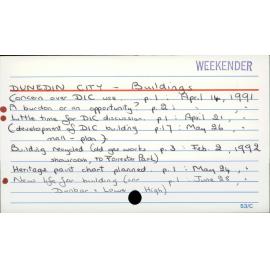 WEEKENDER
DUNEDIN CITY - Buildings
Concern over DIC use. p.1 : April 14, 1991
A burden or an opportunity? p.2 : " "
Little time for DIC discussion. p.1 : April 21, "
(development of DIC building p.17 : May 26, "
mall - plan)
Building recycled (old gas works p.3 : Feb. 2, 1992
showroom, to Forrester Park)
Heritage paint chart planned p.1 : May 24, "
New life for building (cnr p.1 : June 28, "
Dunbar & Lower High)
53/C